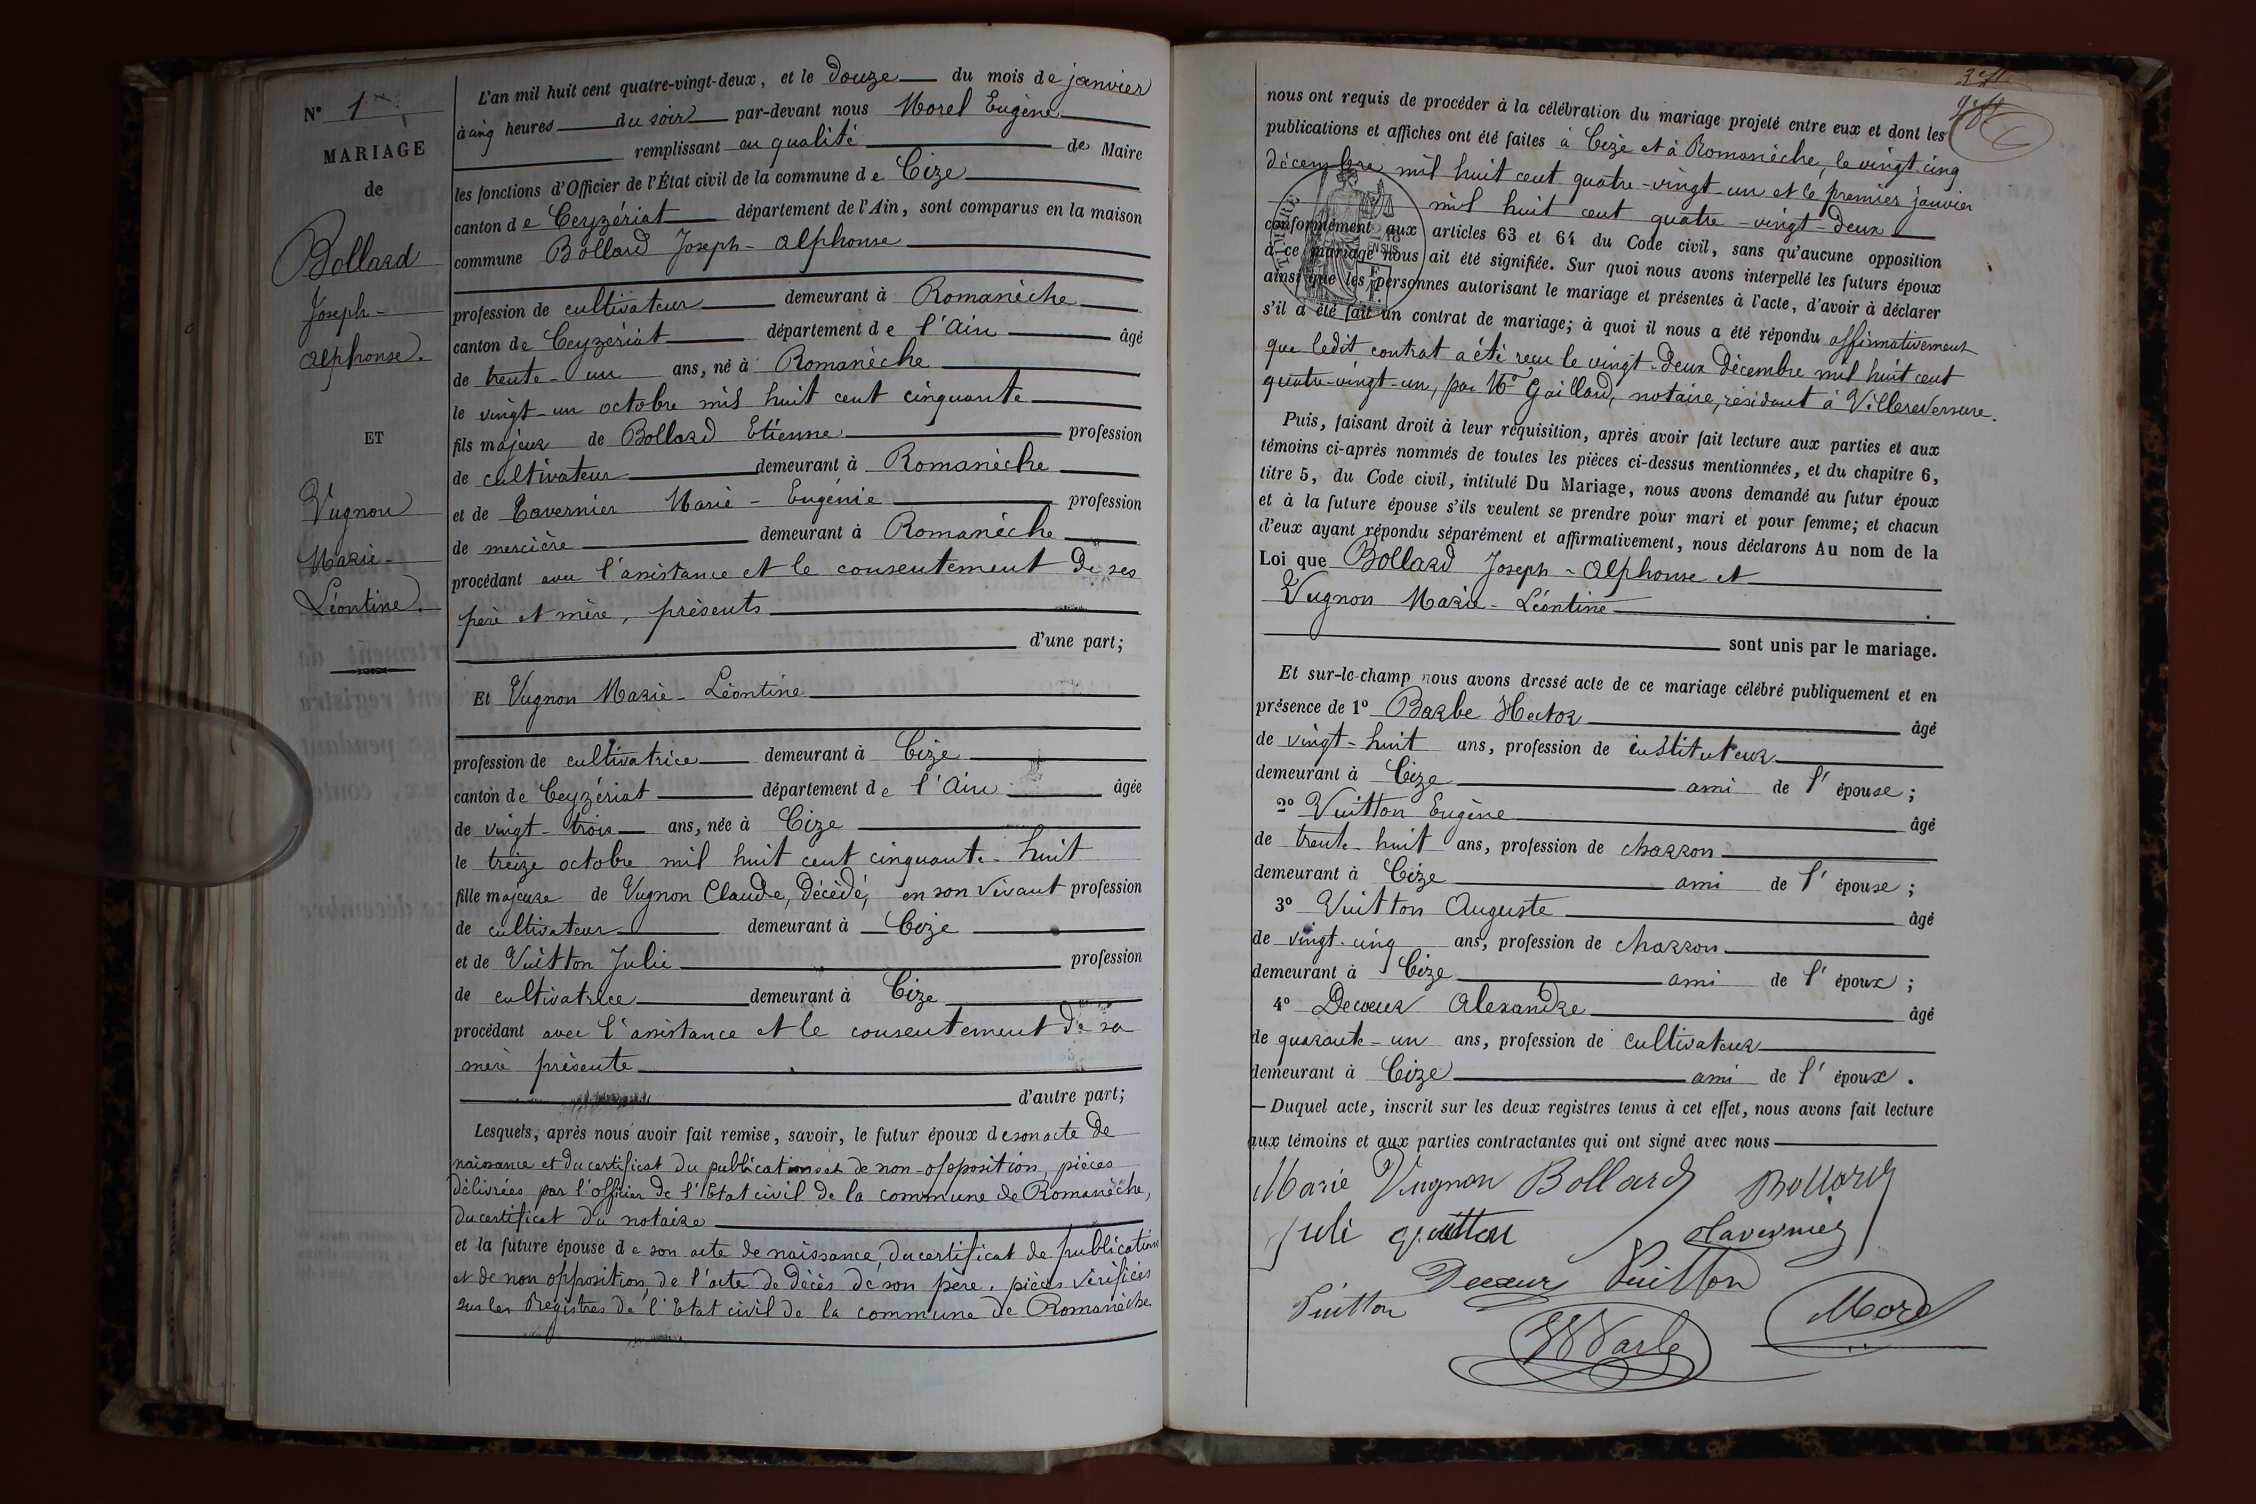 N° 1
MARIAGE
de
Bollard
Joseph-
Alphonse.
ET
Vugnon
Marie-
Léontine.
L'an mil huit cent quatre-vingt-deux, et le douze du mois de janvier
à cinq heures du soir par-devant nous Morel Eugène
remplissant en qualité de Maire
les fonctions d'Officier de l'État civil de la commune de Cize
canton de Ceyzériat département de l'Ain, sont comparus en la maison
commune Bollard Joseph-Alphonse
profession de cultivateur demeurant à Romanèche
canton de Ceyzériat département de l'Ain âgé
de trente-un ans, né à Romanèche
le vingt-un octobre mil huit cent cinquante
fils majeur de Bollard Etienne profession
de cultivateur demeurant à Romanèche
et de Tavernier Marie-Eugénie profession
de mercière demeurant à Romanèche
procédant avec l'assistance et le consentement de ses
père et mère, présents
d'une part;
Et Vugnon Marie-Léontine
profession de cultivatrice demeurant à Cize
canton de Ceyzériat département de l'Ain âgée
de vingt-trois ans, née à Cize
le treize octobre mil huit cent cinquante-huit
fille majeure de Vugnon Claude, décédé, en son vivant profession
de cultivateur demeurant à Cize
et de Vuitton Julie profession
de cultivatrice demeurant à Cize
procédant avec l'assistance et le consentement de sa
mère présente
d'autre part;
Lesquels, après nous avoir fait remise, savoir, le futur époux de son acte de
naissance et du certificat du publications et de non-opposition, pièces
délivrées par l'officier de l'Etat civil de la commune de Romanèche,
du certificat du notaire
et la future épouse de son acte de naissance, du certificat de publication
et de non opposition, de l'acte de décès de son père, pièces vérifiées
sur les Registres de l'Etat civil de la commune de Romanèche
nous ont requis de procéder à la célébration du mariage projeté entre eux et dont les
publications et affiches ont été faites à Cize et à Romanèche, le vingt-cinq
décembre mil huit cent quatre-vingt-un et le premier janvier
mil huit cent quatre-vingt-deux
conformément aux articles 63 et 64 du Code civil, sans qu'aucune opposition
à ce mariage nous ait été signifiée. Sur quoi nous avons interpellé les futurs époux
ainsi que les personnes autorisant le mariage et présentes à l'acte, d'avoir à déclarer
s'il a été fait un contrat de mariage; à quoi il nous a été répondu affirmativement
que ledit contrat a été reçu le vingt-deux décembre mil huit cent
quatre-vingt-un, par Me Gaillard, notaire, résidant à Villereversure.
Puis, faisant droit à leur réquisition, après avoir fait lecture aux parties et aux
témoins ci-après nommés de toutes les pièces ci-dessus mentionnées, et du chapitre 6,
titre 5, du Code civil, intitulé Du Mariage, nous avons demandé au futur époux
et à la future épouse s'ils veulent se prendre pour mari et pour femme; et chacun
d'eux ayant répondu séparément et affirmativement, nous déclarons Au nom de la
Loi que Bollard Joseph-Alphonse et
Vugnon Marie-Léontine
sont unis par le mariage.
Et sur-le-champ nous avons dressé acte de ce mariage célébré publiquement et en
présence de 1° Barbe Hector âgé
de vingt-huit ans, profession de instituteur
demeurant à Cize ami de l'épouse;
2° Vuitton Eugène âgé
de trente-huit ans, profession de charron
demeurant à Cize ami de l'épouse;
3° Vuitton Auguste âgé
de vingt-cinq ans, profession de charron
demeurant à Cize ami de l'époux;
4° Decœur Alexandre âgé
de quarante-un ans, profession de cultivateur
demeurant à Cize ami de l'époux.
— Duquel acte, inscrit sur les deux registres tenus à cet effet, nous avons fait lecture
aux témoins et aux parties contractantes qui ont signé avec nous
Marie Vugnon Bollard Bollard
Juli Tavernier
Decœur Vuitton
Vuitton Morel